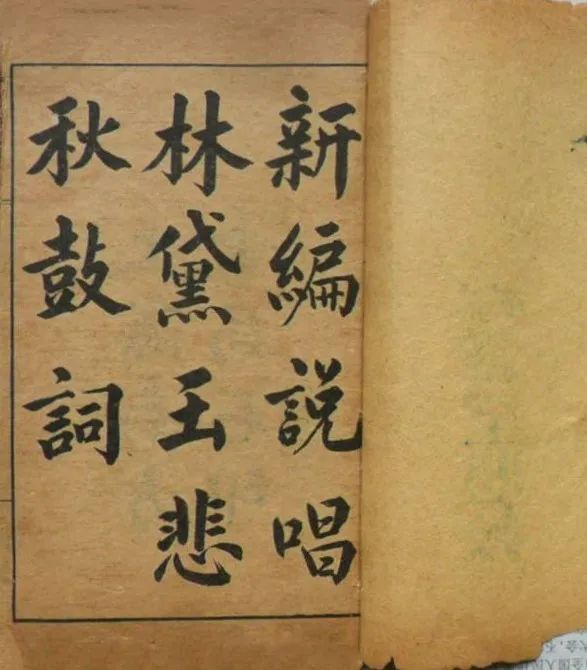 新編說唱
林黛玉悲
秋鼓詞